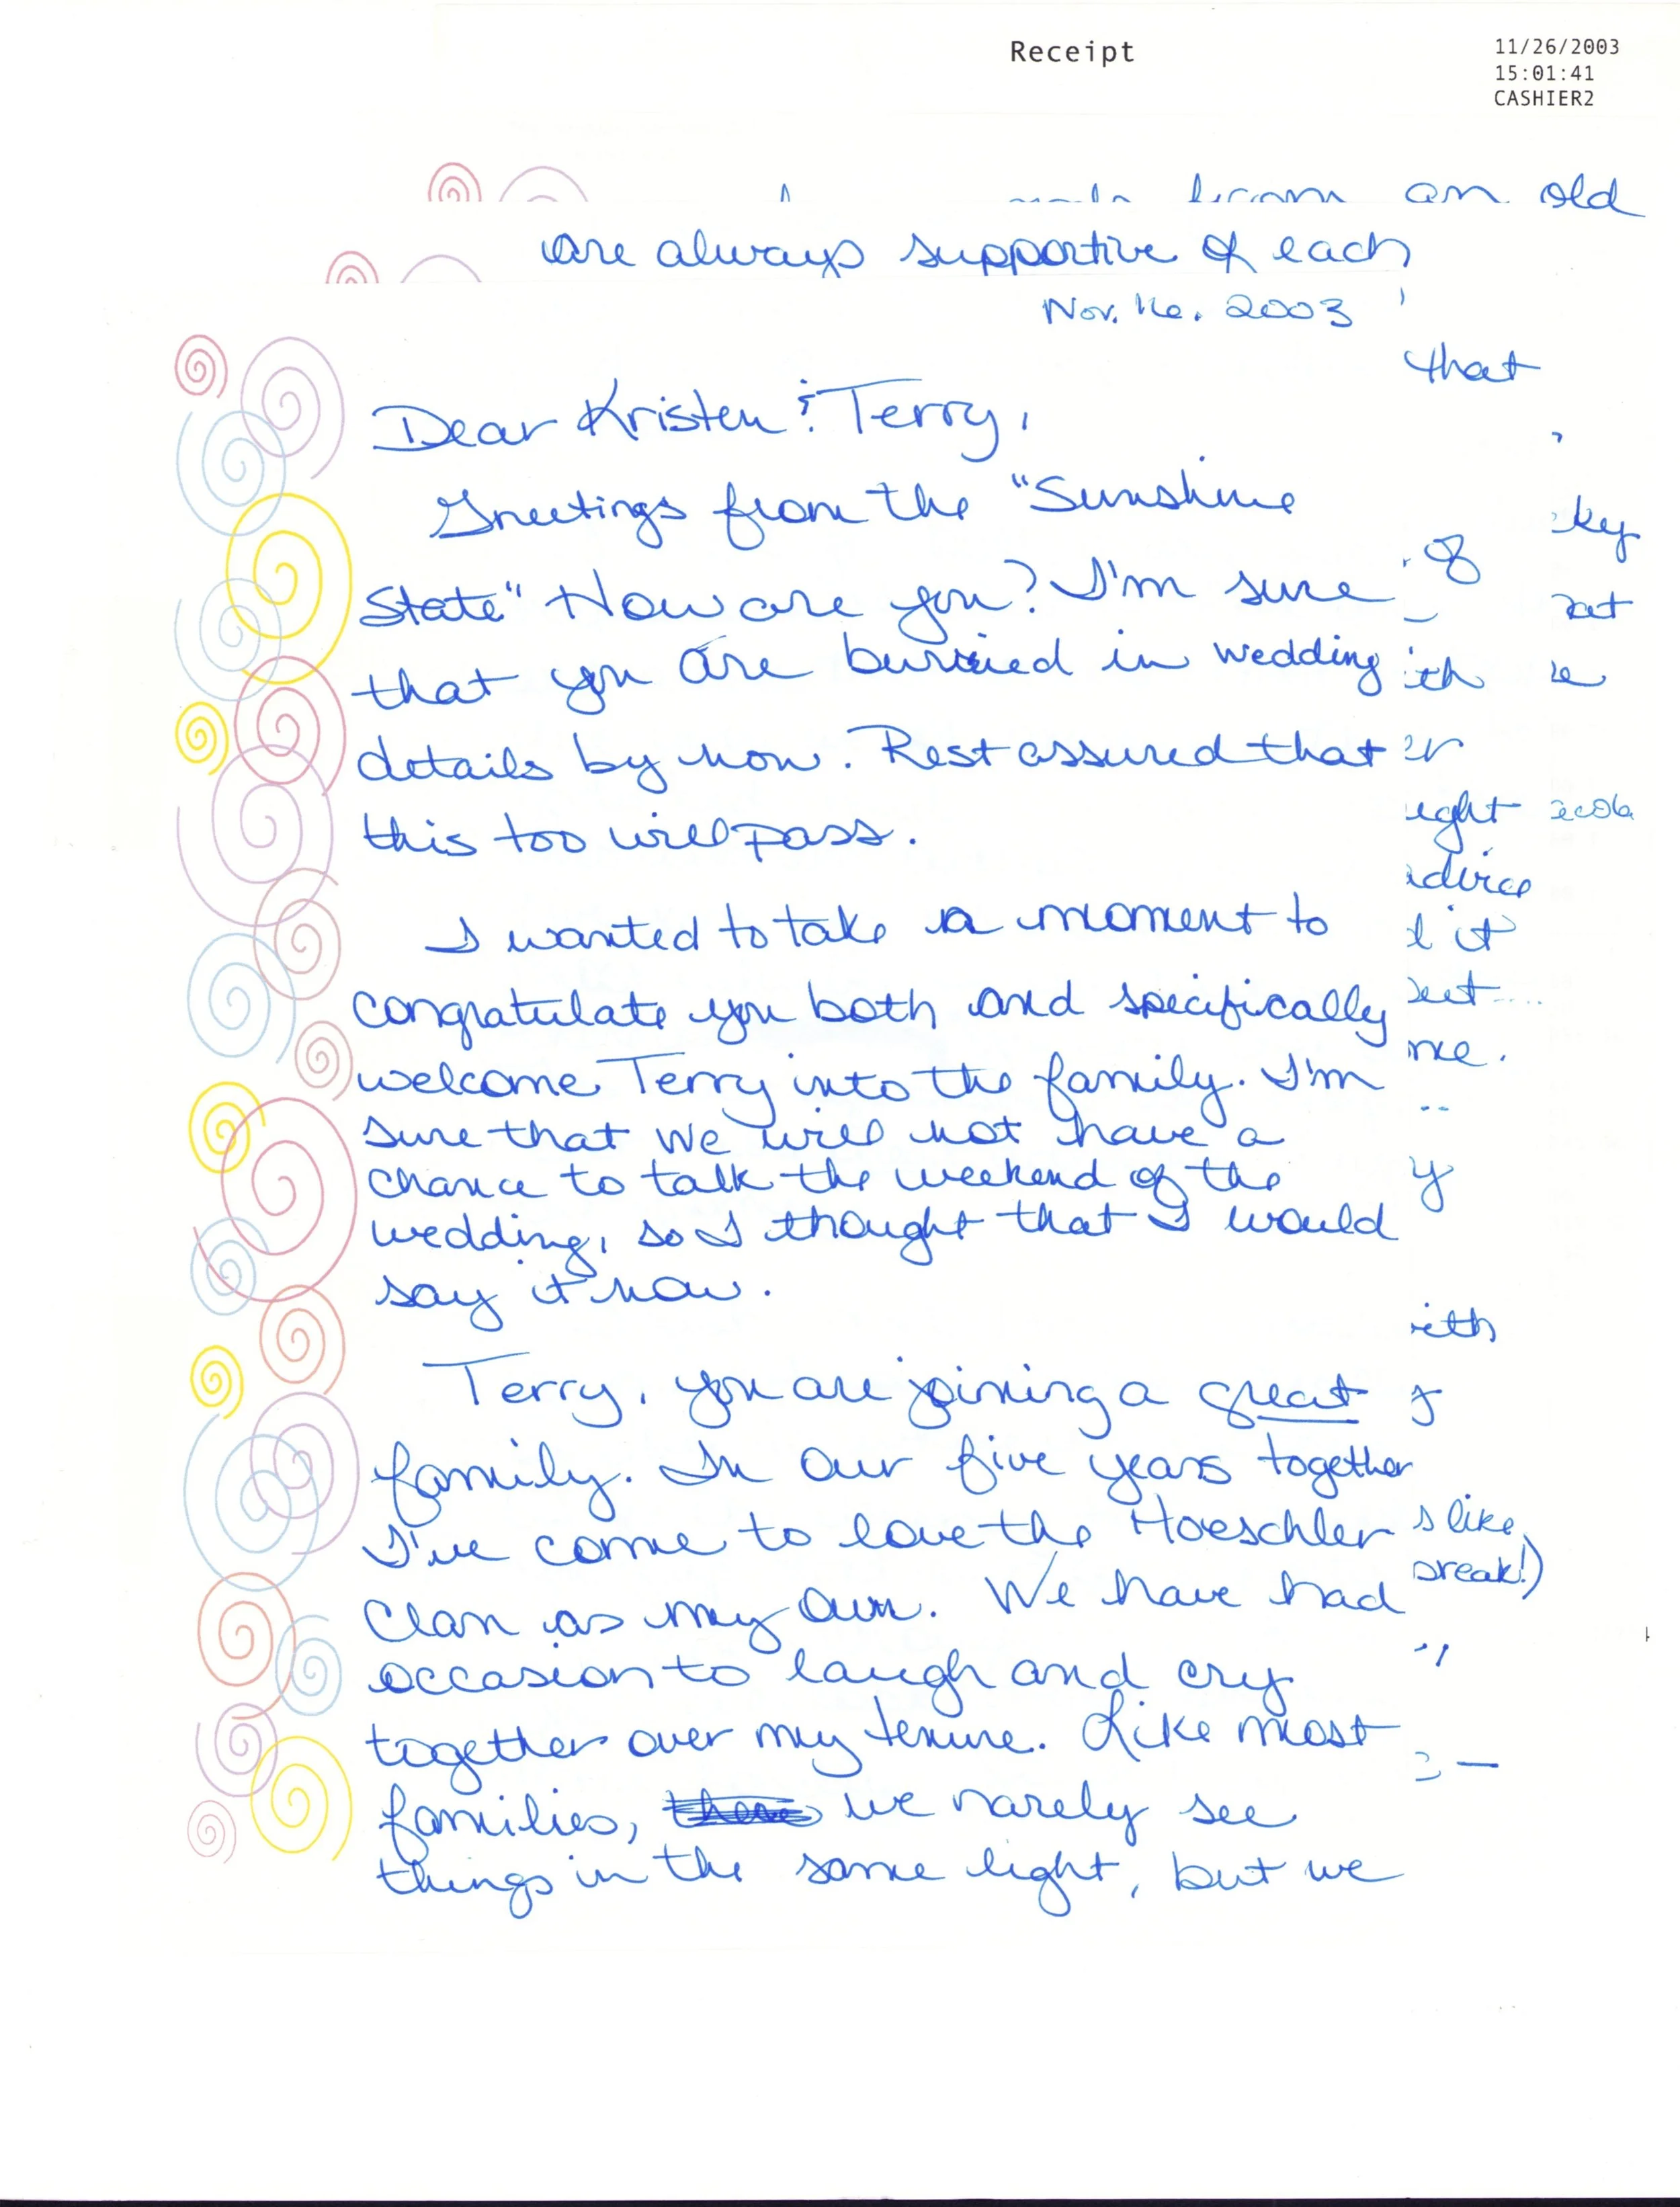 Receipt
11/26/2003
15:01:41
CASHIER2
an old
are always supportive of each
Nov. 16. 2003
that
Dear Kristen & Terry,
Greetings from the "Sunshine
State" How are you? I'm sure
that you are buried in wedding
details by now. Rest assured that
this too will pass.
I wanted to take a moment to
congratulate you both and specifically
welcome Terry into the family. I'm
sure that we will not have a
chance to talk the weekend of the
wedding, so I thought that I would
say it now.
Terry, you are joining a great
family. In our five years together
I've come to love the Hoeschler
Clan as my own. We have had
occasion to laugh and cry
together over my tenure. Like most
families, we rarely see
things in the same light, but we
s like
break!)